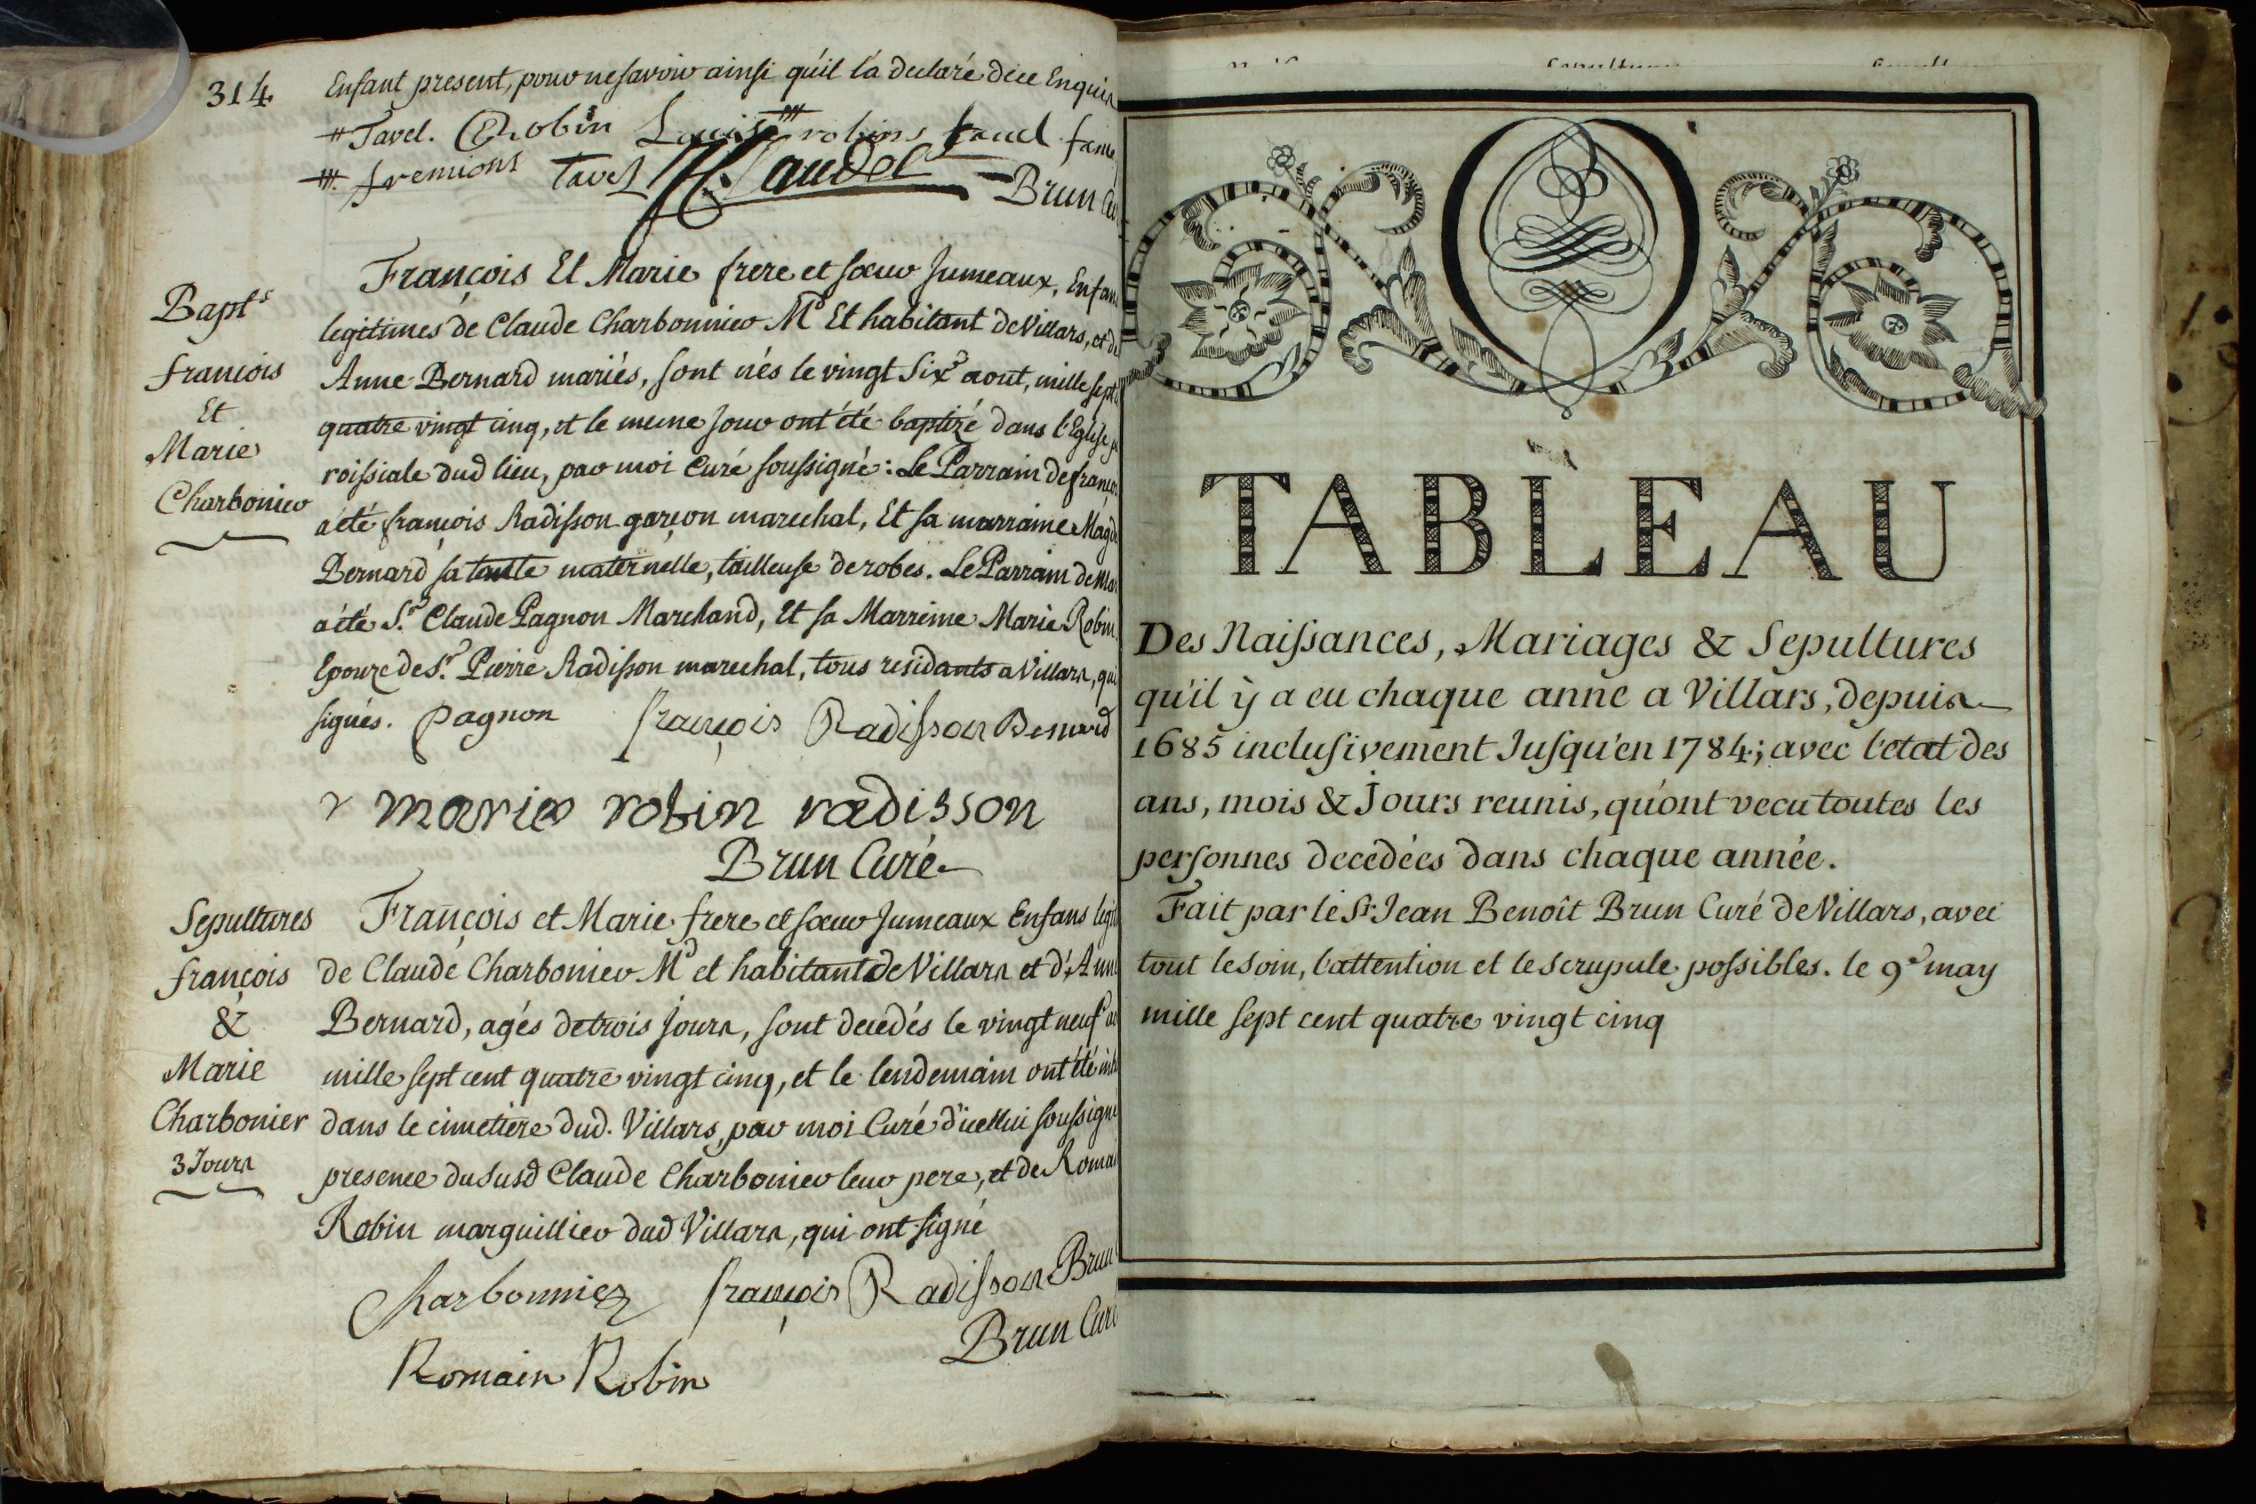 314
Enfant present, pour ne savoir ainsi qu'il l'a declaré de ce Enquis
Tavel. Robin Louis robins
fremions Tavel Claudel
Brun
Bapt.s
francois
Et
Marie
Charbonier
François Et Marie frere et sœur Jumeaux, Enfan
legitimes de Claude Charbonnier M.d Et habitant de Villars, et de
Anne Bernard mariés, sont nés le vingt Six.e aout, mille sept c
quatre vingt cinq, et le meme Jour ont été baptizé dans l'Eglise pa
roissiale dud lieu, par moi Curé soussigné: Le Parrain de françois
a été françois Radisson garçon marechal, Et sa marraine Magd
Bernard sa tente maternelle, tailleuse de robes. Le Parrain de Mar
a été S.r Claude Pagnon Marchand, Et sa Marreine Marie Robin
Epouze de S.r Pierre Radisson marechal, tous residants a Villars, qui
signés. Pagnon françois Radisson Bernard
marie robin radisson
Brun Curé
Sepultures
françois
&
Marie
Charbonier
3 Jours
François et Marie frere et sœur Jumeaux Enfans legit
de Claude Charbonier M.d et habitant de Villars et d'Anne
Bernard, agés de trois jours, sont decedés le vingt neuf ao
mille sept cent quatre vingt cinq, et le lendemain ont été inh
dans le cimetiere dud. Villars, par moi Curé d'icellui soussigné
presence du susd Claude Charbonier leur pere, et de Romai
Robin marguillier dud Villars, qui ont signé
Charbonnier françois Radisson Brun
Brun Curé
Romain Robin
TABLEAU
Des Naissances, Mariages & Sepultures
qu'il ÿ a eu chaque anne a Villars, depuis
1685 inclusivement Jusqu'en 1784; avec l'etat des
ans, mois & Jours reunis, qu'ont vecu toutes les
personnes decedées dans chaque année.
Fait par le Sr. Jean Benoît Brun Curé de Villars, avec
tout le soin, l'attention et le scrupule possibles. le 9.e may
mille sept cent quatre vingt cinq